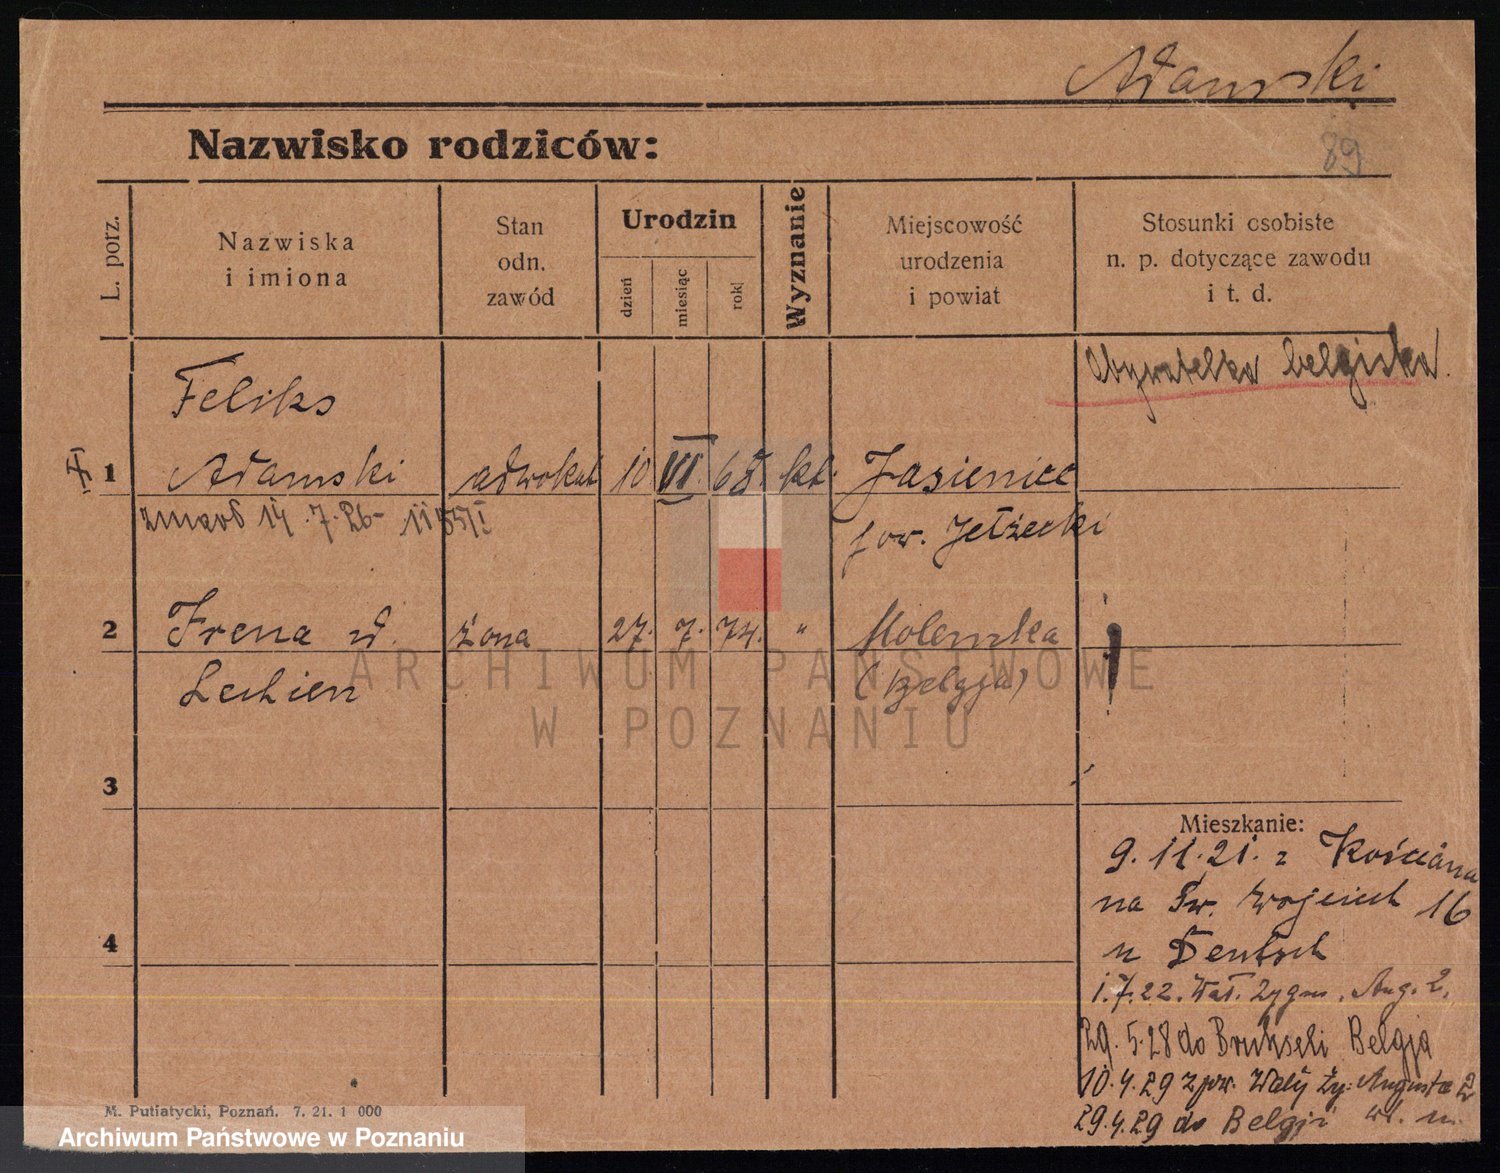 Adamski
89
Nazwisko rodziców:
L. porz.
Nazwiska
i imiona
Stan
odn.
zawód
Urodzin
dzień
miesiąc
rok
Wyznanie
Miejscowość
urodzenia
i powiat
Stosunki osobiste
n. p. dotyczące zawodu
i t. d.
Obywatelka belgijska.
Feliks
1 Adamski adwokat 10 VI. 68. kt. Jasieniec
zmarł 14.7.26- 1155/I pow. Jełżecki
2 Irena ur. żona 27. 7. 74. " Molenska
Lechien (Belgja)
3
4
Mieszkanie:
9.11.21. z Kościana
na Św. Wojciech 16
u Deutsch
1.7.22. Wał. Zygm. Aug. 2.
29.5.28 do Brukseli Belgja
10.4.29 z pow. Wały Zy: Augusta 2
29.4.29 do Belgji
M. Putiatycki, Poznań. 7. 21. 1 000
ARCHIWUM PAŃSTWOWE
W POZNANIU
Archiwum Państwowe w Poznaniu